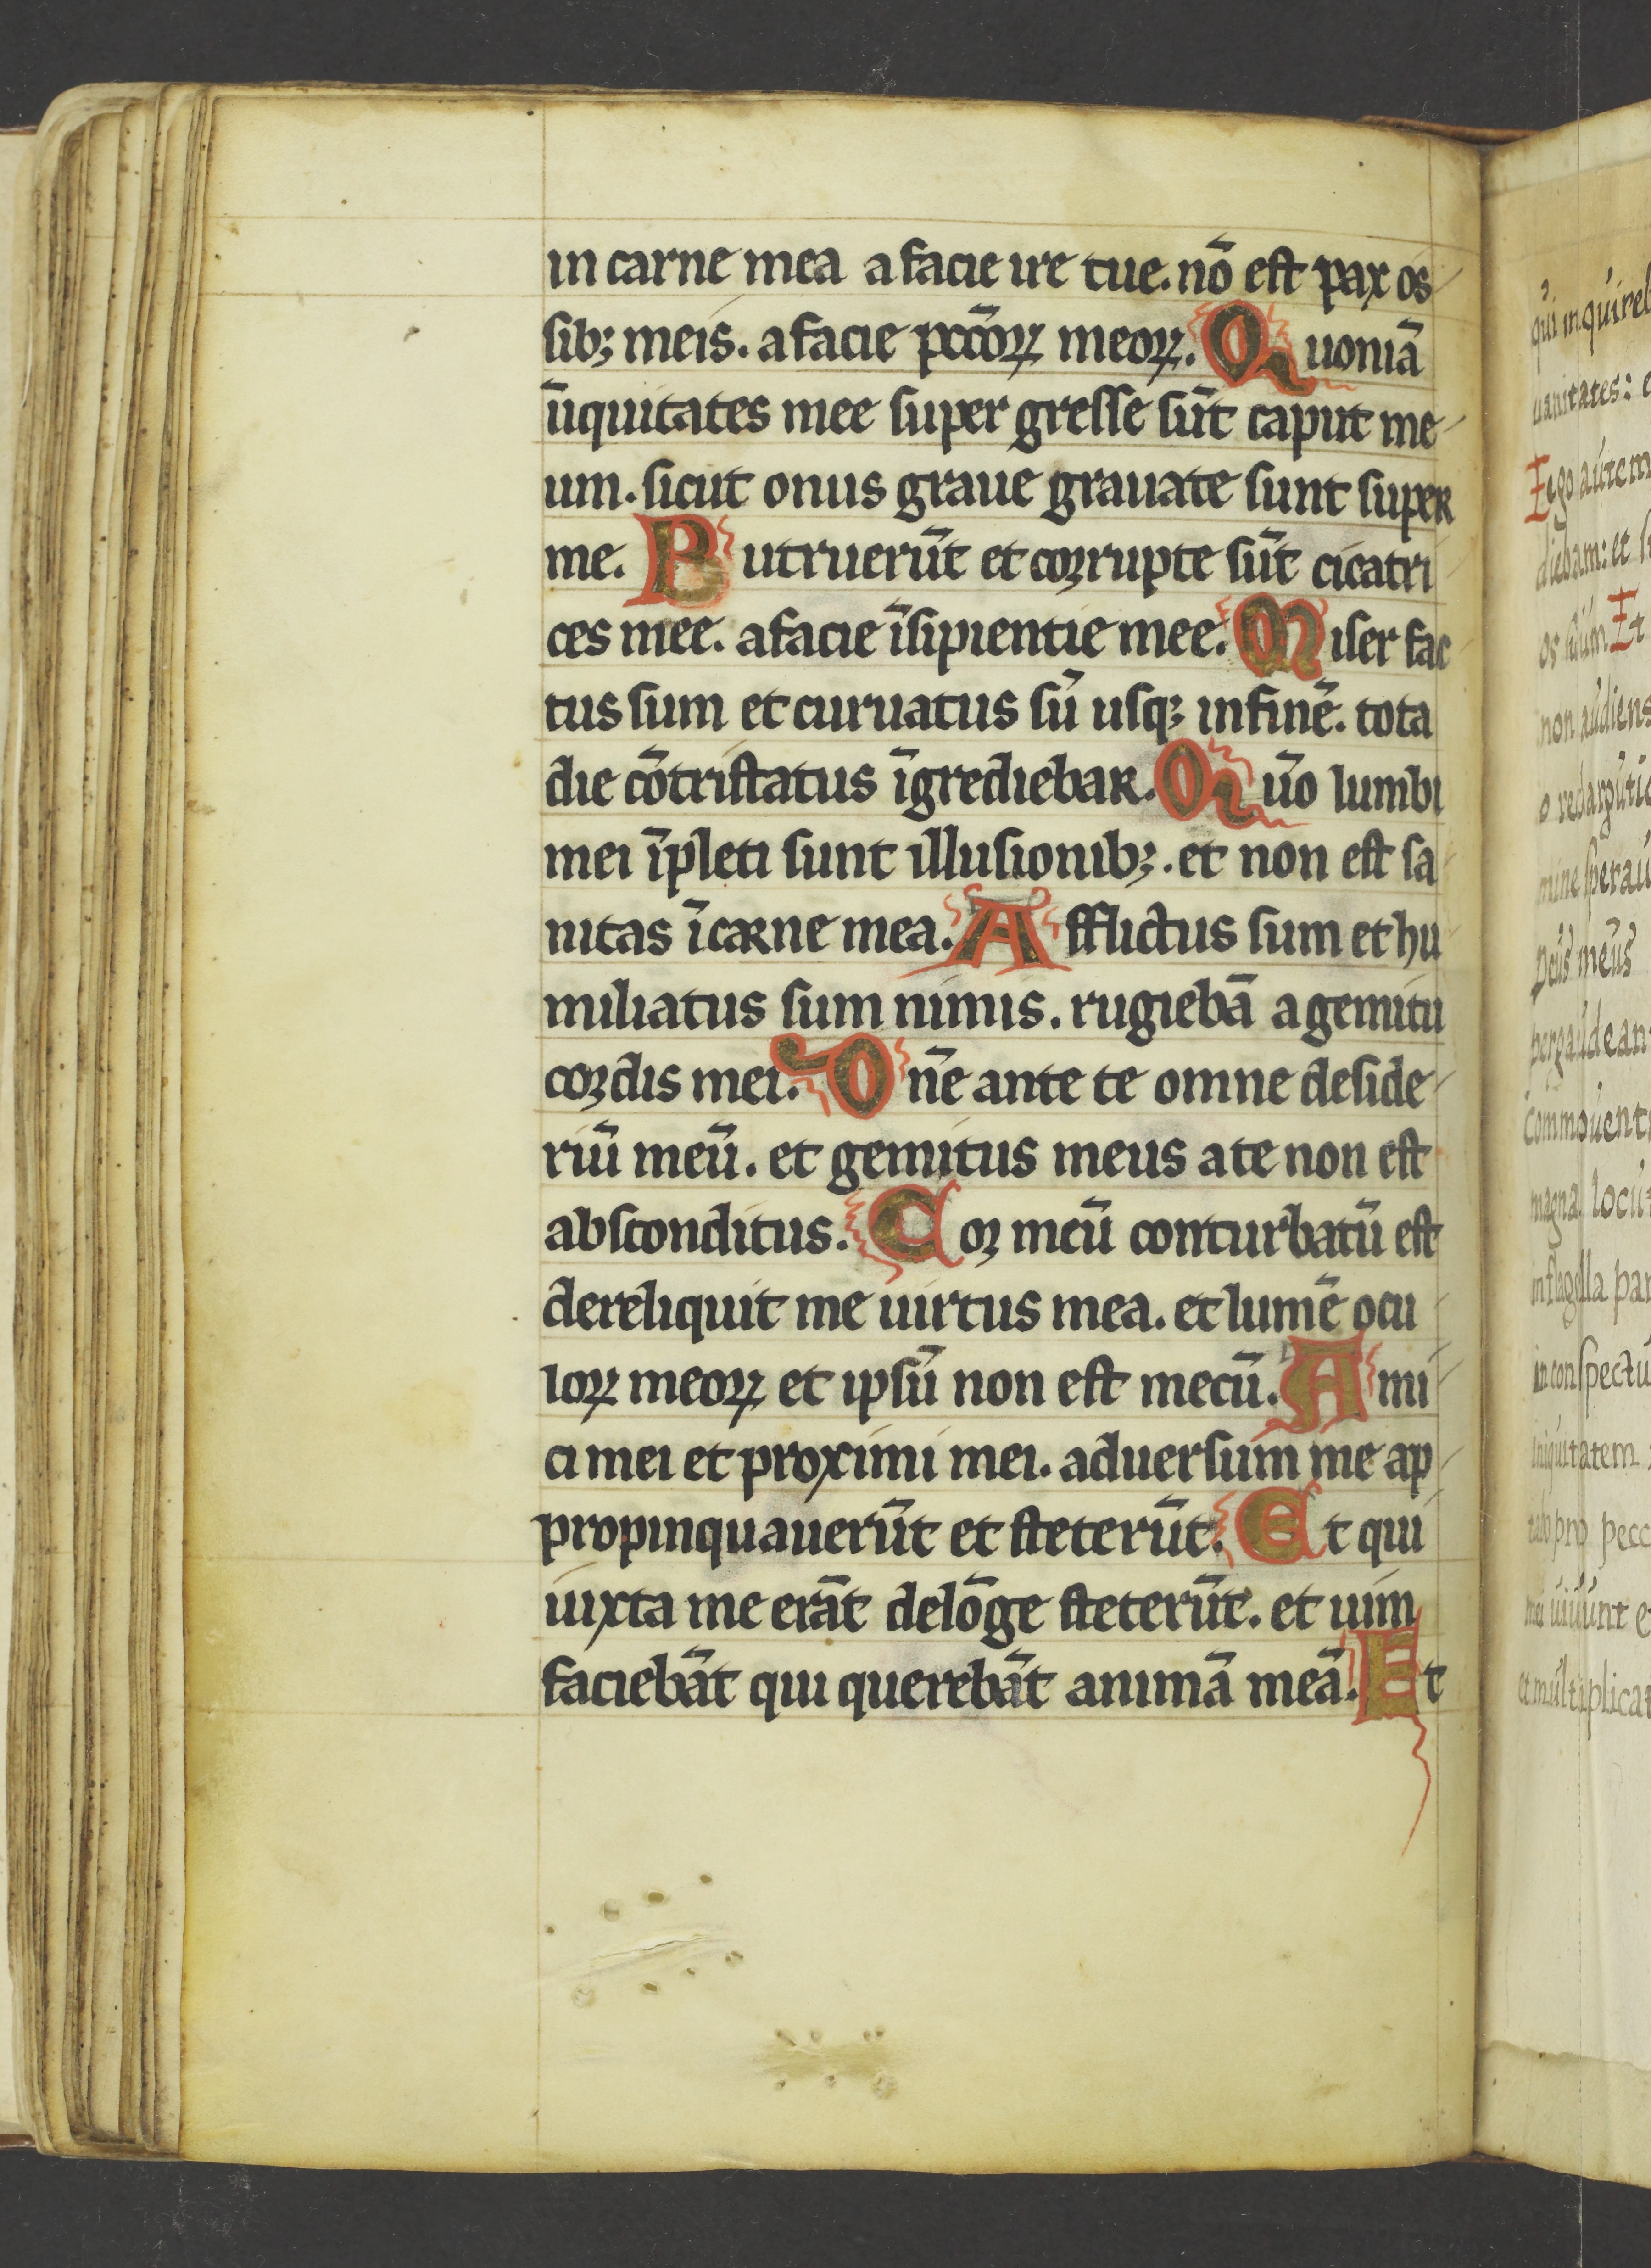 in carne mea a facie ire tue. nō est pax os
sibꝫ meis. a facie pctōꝝ meoꝝ. Quoniā
īiquitates mee super gresse sūt caput me
um. sicut onus graue grauate sunt super
me. Putruerūt et corrupte sūt cicatri
ces mee. a facie īsipientie mee. Miser fac
tus sum et curuatus sū usqꝫ in finē. tota
die cōtristatus īgrediebar. Qūo lumbi
mei īpleti sunt illusionibꝫ. et non est sa
nitas ī carne mea. Afflictus sum et hu
miliatus sum nimis. rugiebā a gemitu
cordis mei. Dn̄e ante te omne deside
riū meū. et gemitus meus a te non est
absconditus. Cor meū conturbatū est
dereliquit me uirtus mea. et lumē ocu
loꝝ meoꝝ et ipsū non est mecū. Ami
ci mei et proximi mei. aduersum me ap
propinquauerūt et steterūt. Et qui
iuxta me erāt de lōge steterūt. et uim
faciebāt qui querebāt animā meā. Et
qui inquireb
uanitates: e
Ego autem
diebam: et
os suum Et
non audiens
o redargutio
mine speraui
Deus meus
pergaudean
commouent
magna locut
in flagella par
in conspectu
iniquitatem
tabo pro pecc
mei uiuunt e
et multiplicat